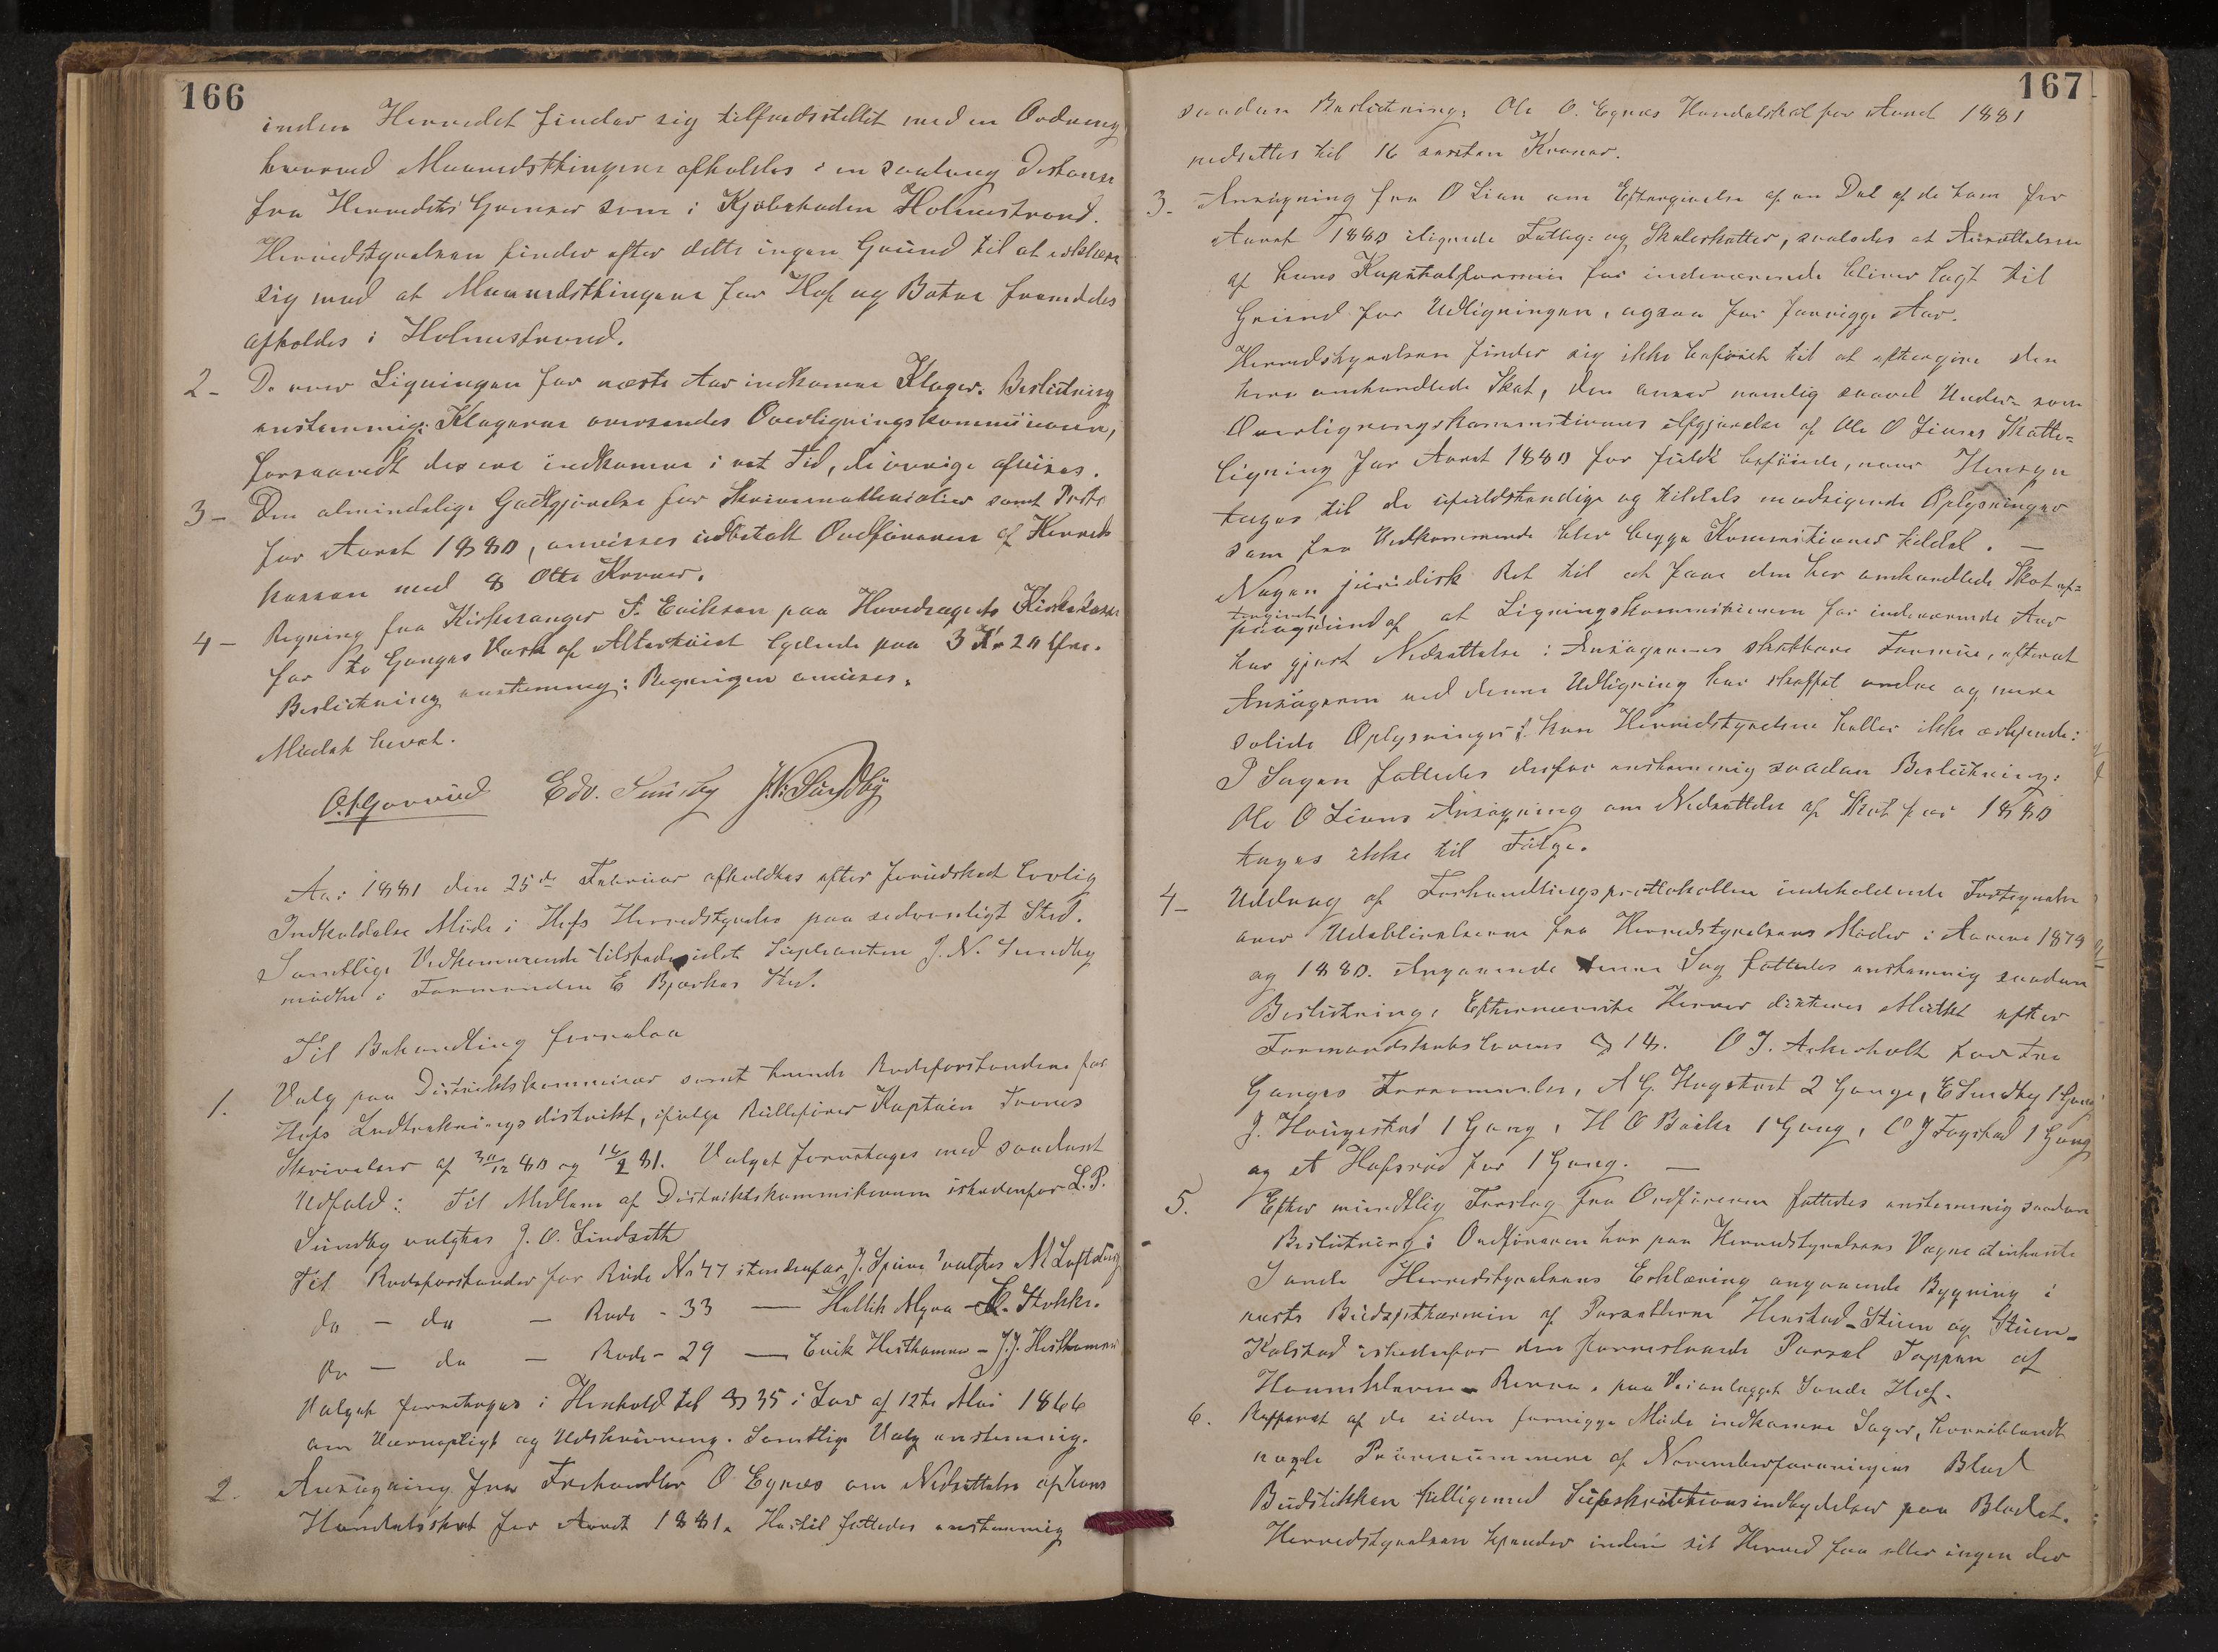 166
inden Herredet finder sig tilfredsstillet med en Ordning
hvorved Maanedsthingene afholdes i en saadan Distanse
fra Herredets Grændser som i Kjøbstaden Holmestrand.
Herredstyrelsen finder efter dette ingen Grund til at erklære
sig mod at Maanedsthingene for Hof og Botne fremdeles
afholdes i Holmestrand.
2 - De over Ligningen for næste Aar indkomne Klager. Beslutning
enstemmig: Klagerne oversendes Overligningskommissionen,
forsaavidt des ere indkomne i ret Tid, de øvrige afvises.
3 - Den almindelige Godtgjørelse for Skrivematerialier samt Porto
for Aaret 1880, anvises udbetalt Ordføreren af Herreds
kassen med 8 Otte Kroner.
4 - Regning fra Kirkesanger S. Eriksen paa Hovedsognets Kirkekasse
for to Ganges Vask af Altertøiet lydende paa 3 Kr 20 Øre.
Beslutning enstemmig: Regningen anvises.
Mødet hævet.
Edv. Sundby J. N. Sundby
Aar 1881 den 25de Februar afholdtes efter forudskeet lovlig
Indkaldelse Møde i Hofs Herredstyrelse paa sedvanligt Sted.
Samtlige Vedkommende tilstede, idet Suppleanten J. N. Sundby
mødte i Formanden E Bjerkes Sted.
Til Behandling forelaa
1. Valg paa Distriktskommissær samt trende Rodeforstandere for
Hofs Indtrækningsdistrikt, ifølge Rullefører Kaptein Trones
Skrivelser af 30/12 80 og 16/2 81. Valget foretages med saadant
Udfald: Til Medlem af Distriktskommissionen istedenfor L. P.
Sundby valgtes J. O. Lindseth
Til Rodeforstander for Rode No 47 istedenfor J. valgtes M
do - do - Rode - 33 — Myra - Stokke.
do - do - Rode - 29 — Erik Hesthammer - J. J. Hesthammer
Valget foretoges i Henhold til § 35 i Lov af 12te Mai 1866
om Værnepligt og Udskrivning. Samtlige Valg enstemmig.
2. Ansøgning fra Frehandler O Eynæs om Nedsættelse af hans
Handelsskat for Aaret 1881. Hertil fattedes enstemmig
167
saadan Beslutning: Ole O. Eynæs Handelsskat for Aaret 1881
nedsættes til 16 sexten Kroner.
3. Ansøgning fra O Lian om Eftergivelse af en Del af de ham for
Aaret 1880 ilignede Fattig- og Skoleskatter, saaledes at Ansættelsen
af hans Kapitalformue for indeværende bliver lagt til
Grund for Udligningen, ogsaa for forrige Aar.
Herredstyrelsen finder sig ikke beføiet til at eftergive den
her omhandlede Skat, den anser nemlig saavel Under- som
Overligningskommissionens Afgjørelse af Ole O Lians Skatte-
ligning for Aaret 1880 for fuldt beføiede, naar Hensyn
tages til de ufuldstændige og tildels modsigende Oplysninger
som fra Vedkommende blev begge Kommissioner tildel. —
Nogen juridisk Ret til at faae den her omhandlede Skat ef-
tergivet
paagrund af at Ligningskommissionen for indeværende Aar
har gjort Nedsættelse i Ansøgerens skatbare Formue, efterat
Ansøgeren ved denne Udligning har skaffet andre og mere
solide Oplysninger, kan Herredstyrelsen heller ikke erkjende:
I Sagen fattedes derfor enstemmig saadan Beslutning:
Ole O Lians Ansøgning om Nedsættelse af Skat for 1880
tages ikke til Følge.
4 - Uddrag af Forhandlingsprotokollen indeholdende Fortegnelse
over Udeblivelserne fra Herredstyrelsens Møder i Aarene 1879
og 1880. Angaaende denne Sag fattedes enstemmig saadan
Beslutning: Efternævnte Herrer dikteres Mulkt efter
Formandskabslovens § 14. O J. Ackerholt for Tre
Ganges Forsømmelse, A G. Hagstart 2 Gange, E Sundby 1 Gang
J. Haugestad 1 Gang, H O Bakke 1 Gang, O J Fogstad 1 Gang
og A Hofsrød for 1 Gang. —
5. Efter mundtlig Forslag fra Ordføreren fattedes enstemmig saadan
Beslutning: Ordføreren har paa Herredstyrelsens Vegne at indhente
Sande Herredstyrelsens Erklæring angaaende Bygning i
næste Budgettermin af Parsellerne Henstad-Stien og Stien-
Kolstad istedenfor den foreslaaede Parsel Toppen af
Hanekleven - Revaa, paa Veianlægget Sande Hof.
6. Refferat af de siden forrige Møde indkomne Sager, hvoriblandt
nogle Prøvenummere af Novemberforeningens Blad
Budstikken tilligemed Subskriptionsindbydelser paa Bladet.
Herredstyrelsen kjender inden sit Herred faa eller ingen der